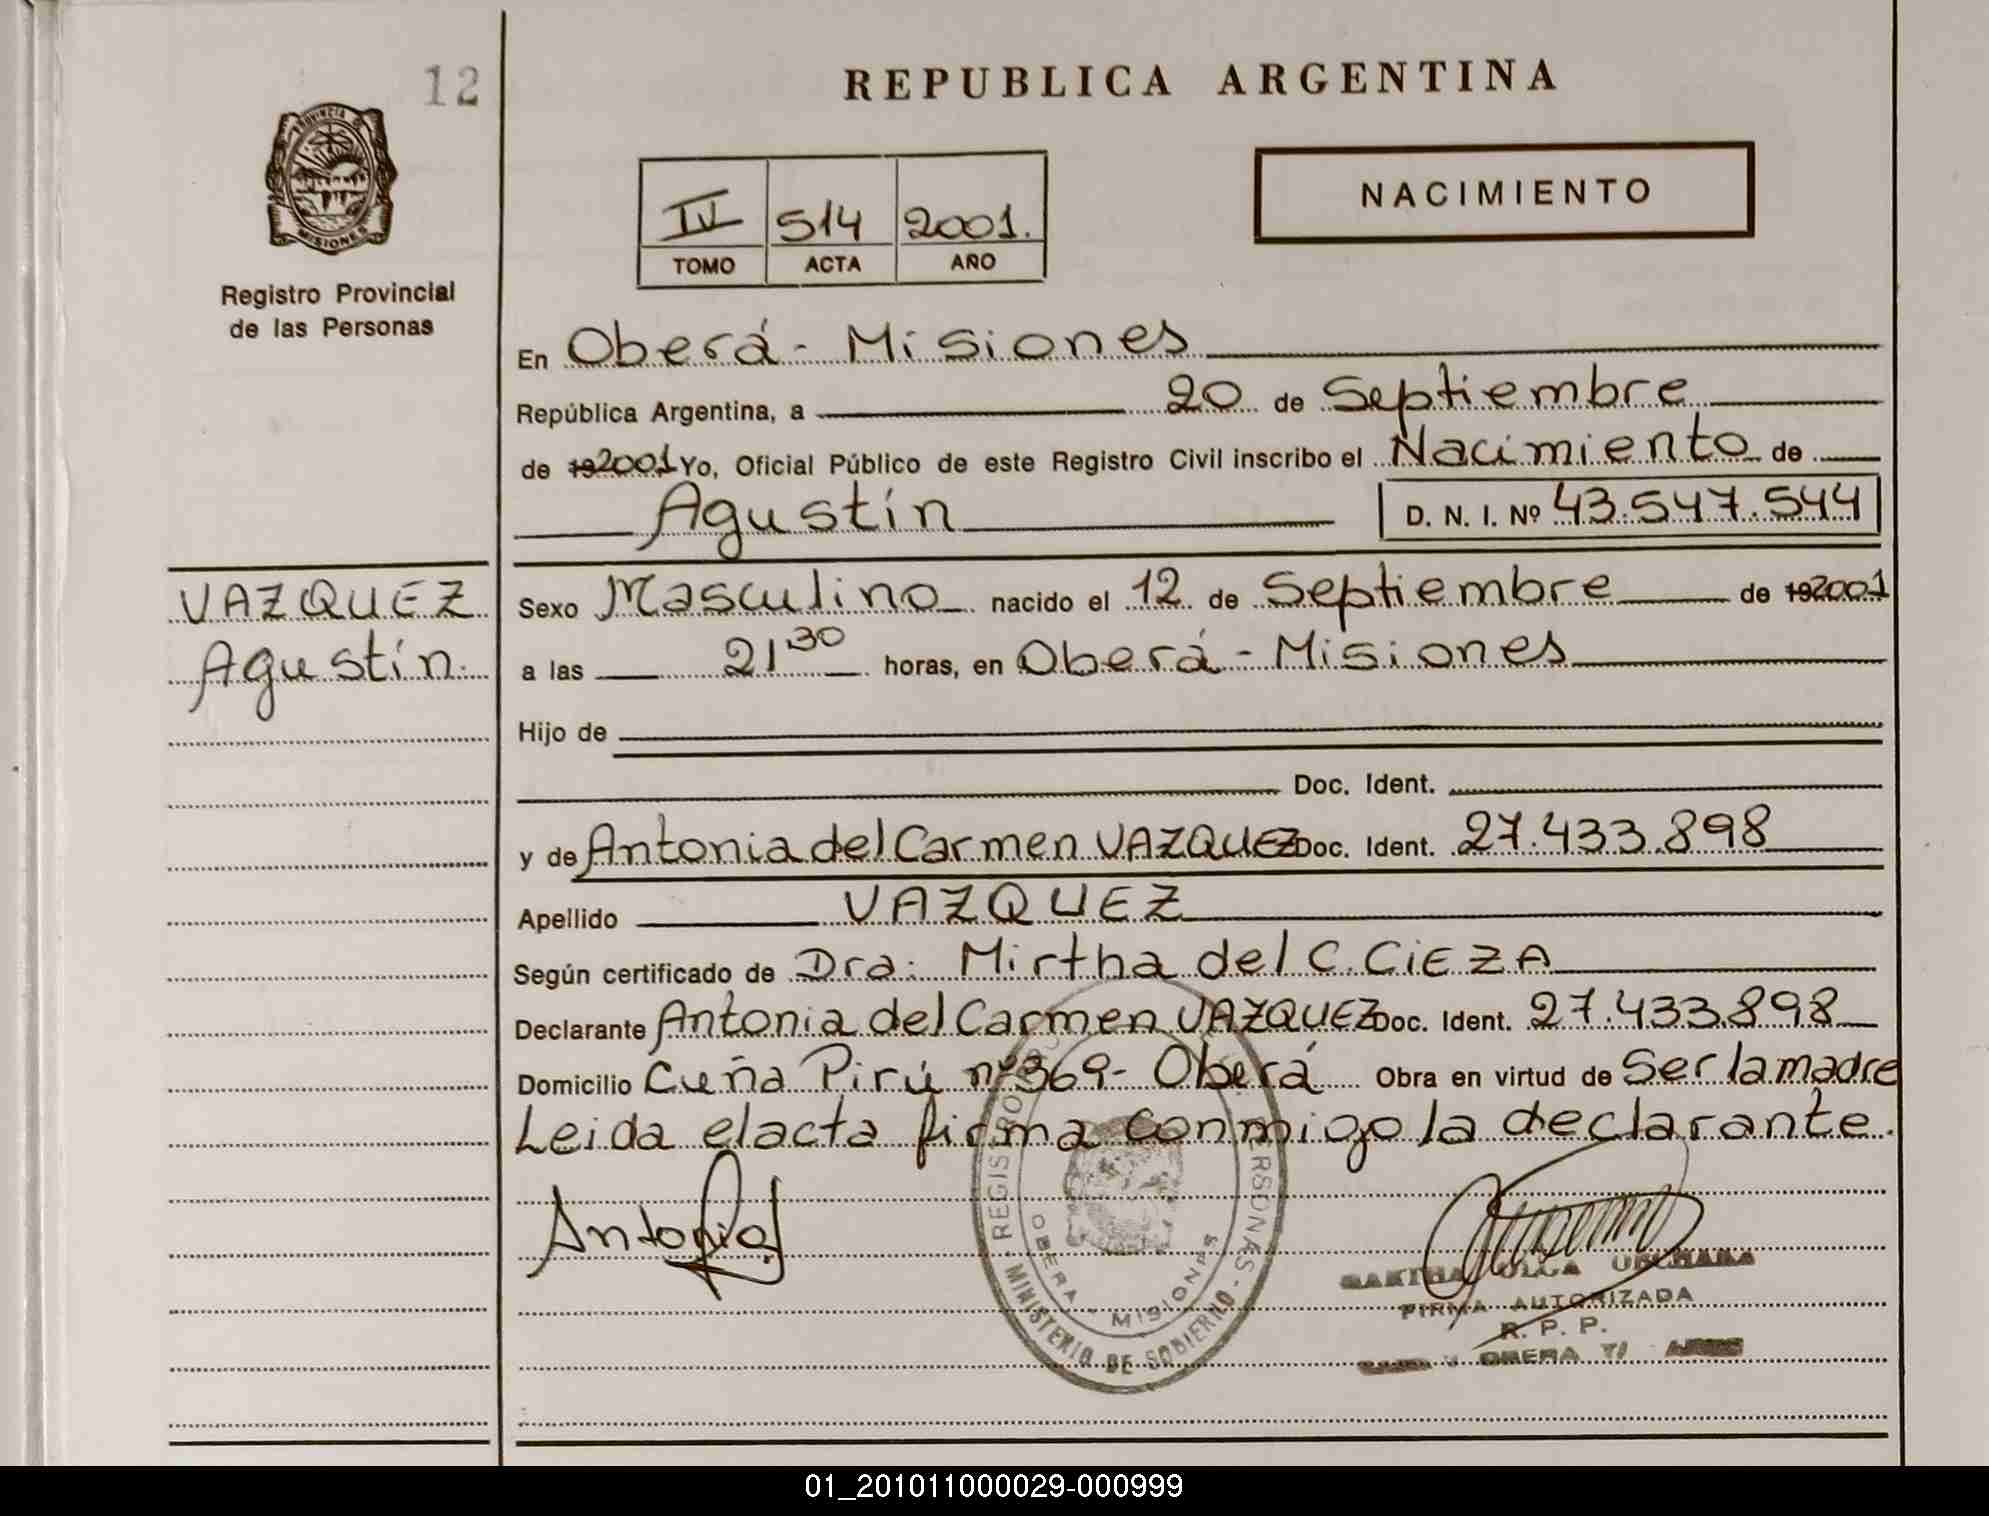 12
REPUBLICA ARGENTINA
PROVINCIA D
MISIONES
Registro Provincial
de las Personas
NACIMIENTO
IV 514 2001.
TOMO ACTA AÑO
En Oberá - Misiones
República Argentina, a 20 de Septiembre
de 192001 Yo, Oficial Público de este Registro Civil inscribo el Nacimiento de
Agustín D. N. I. Nº 43.547.544
VAZQUEZ
Agustín.
Sexo Masculino nacido el 12 de Septiembre de 192001
a las 21 30 horas, en Oberá - Misiones
Hijo de
Doc. Ident.
y de Antonia del Carmen VAZQUEZ Doc. Ident. 27.433.898
Apellido VAZQUEZ
Según certificado de Dra. Mirtha del C. CiEZA
Declarante Antonia del Carmen VAZQUEZ Doc. Ident. 27.433.898
Domicilio Cuña Pirú nº 369 - Oberá Obra en virtud de Ser la madre
Leida el acta firma conmigo la declarante.
Antonia
REGIS PERSONAS
OBERA - MISIONES
MINISTERIO DE GOBIERNO
OLGA
FIRMA AUTORIZADA
R. P. P.
OBERA
01_201011000029-000999